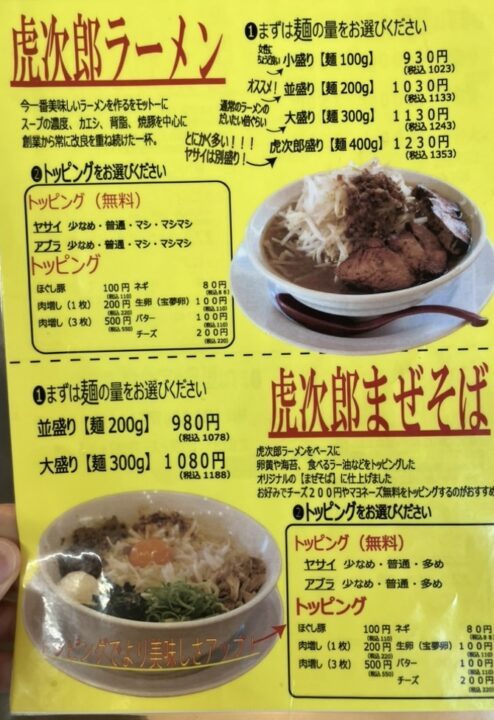 虎次郎ラーメン
今一番美味しいラーメンを作るをモットーに
スープの濃度、カエシ、背脂、焼豚を中心に
創業から常に改良を重ね続けた一杯。
❶まずは麺の量をお選びください
小盛り【麺 100g】 930円
(税込 1023)
オススメ!
並盛り【麺 200g】 1030円
(税込 1133)
通常のラーメンの
だいたい倍ぐらい
大盛り【麺 300g】 1130円
(税込 1243)
とにかく多い!!!
ヤサイは別盛り!
虎次郎盛り【麺 400g】 1230円
(税込 1353)
❷トッピングをお選びください
トッピング(無料)
ヤサイ 少なめ・普通・マシ・マシマシ
アブラ 少なめ・普通・マシ・マシマシ
トッピング
ほぐし豚 100円 ネギ 80円
(税込 110) (税込 88)
肉増し(1枚) 200円 生卵(宝夢卵) 100円
(税込 220) (税込 110)
肉増し(3枚) 500円 バター 100円
(税込 550) (税込 110)
チーズ 200円
(税込 220)
❶まずは麺の量をお選びください
並盛り【麺 200g】 980円
(税込 1078)
大盛り【麺 300g】 1080円
(税込 1188)
虎次郎まぜそば
虎次郎ラーメンをベースに
卵黄や海苔、食べるラー油などをトッピングした
オリジナルの【まぜそば】に仕上げました
お好みでチーズ200円やマヨネーズ無料をトッピングするのがおすすめ
❷トッピングをお選びください
トッピング(無料)
ヤサイ 少なめ・普通・多め
アブラ 少なめ・普通・多め
トッピング
ほぐし豚 100円 ネギ 80円
(税込 110) (税込 88
肉増し(1枚) 200円 生卵(宝夢卵) 100円
(税込 220) (税込 110
肉増し(3枚) 500円 バター 100円
(税込 550) (税込 110
チーズ 200円
(税込 220
トッピングでより美味しさアップ!